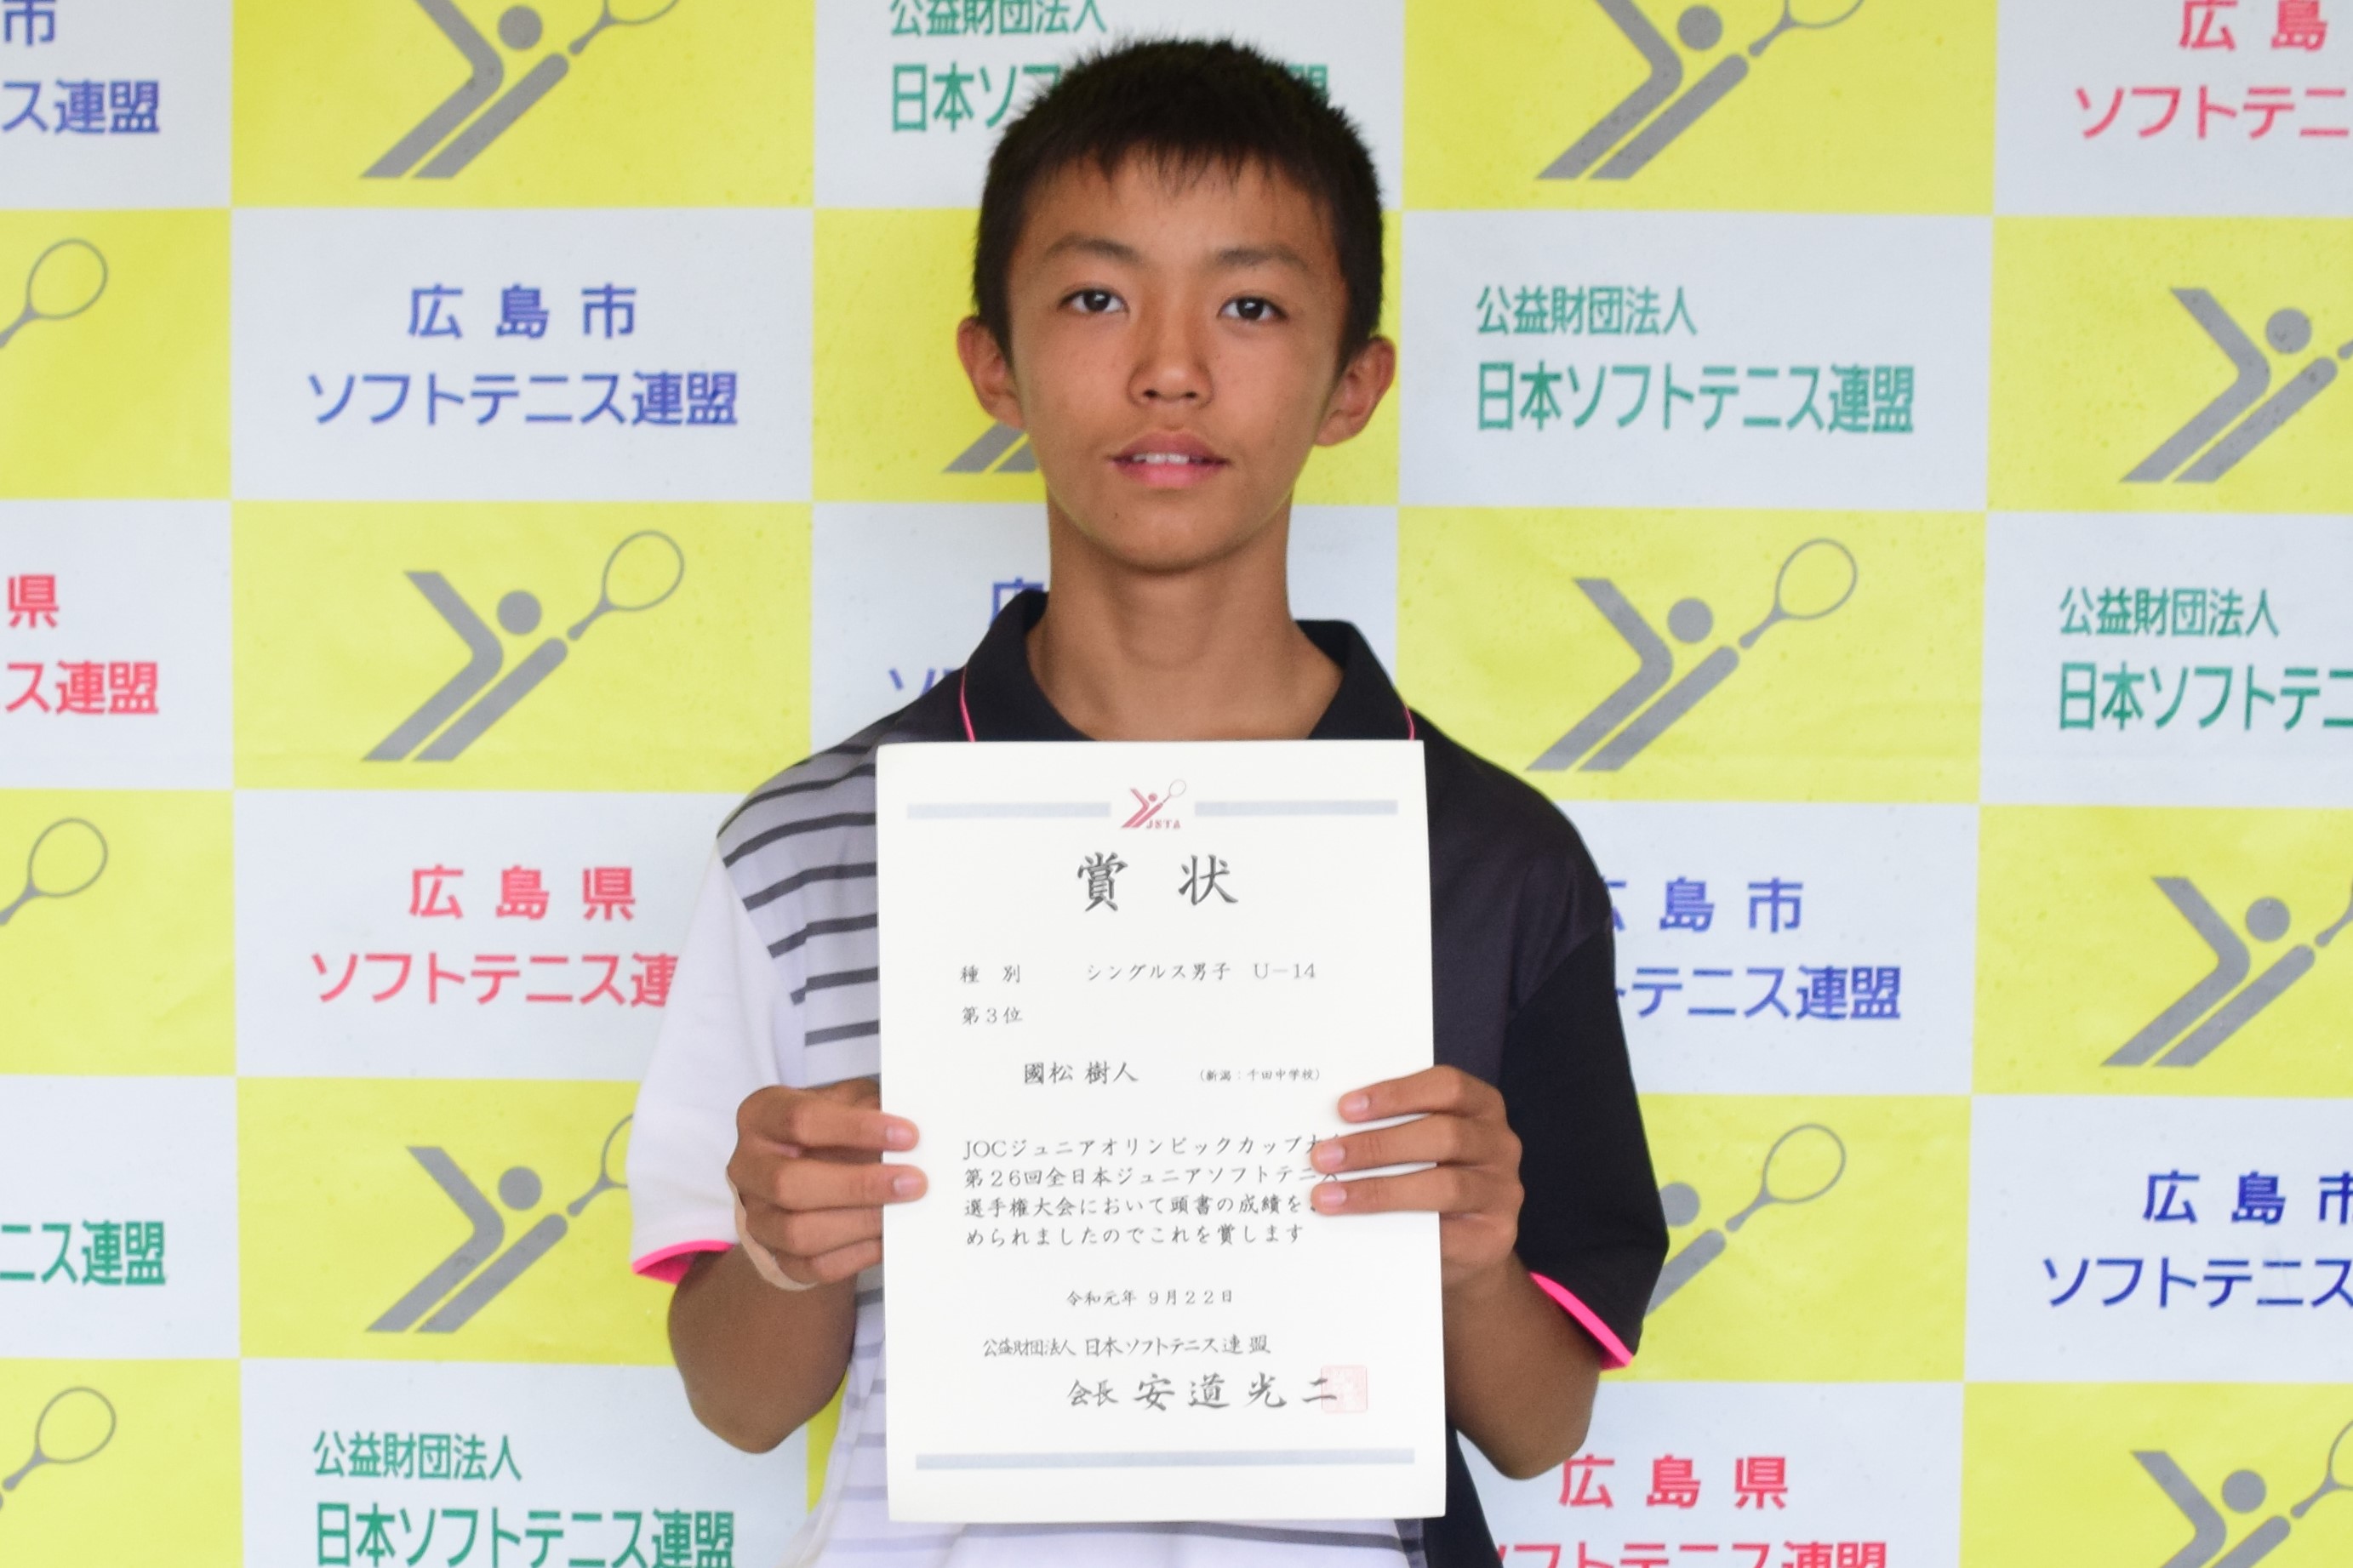 市
ス連盟
公益財団法人
日本ソフ
盟
広島
ソフトテニ
広島市
ソフトテニス連盟
公益財団法人
日本ソフトテニス連盟
県
ス連盟
広
ソ
公益財団法人
日本ソフトテニ
広島県
ソフトテニス連
広島市
テニス連盟
JSTA
賞状
種別 シングルス男子 U-14
第3位
國松 樹人 (新潟:千田中学校)
JOCジュニアオリンピックカップ大
第26回全日本ジュニアソフトテニス
選手権大会において頭書の成績を
められましたのでこれを賞します
令和元年 9月22日
公益財団法人 日本ソフトテニス連盟
会長 安道光二
ニス連盟
広島市
ソフトテニス
公益財団法人
日本ソフトテニス連盟
広島県
ソフトテニス連盟